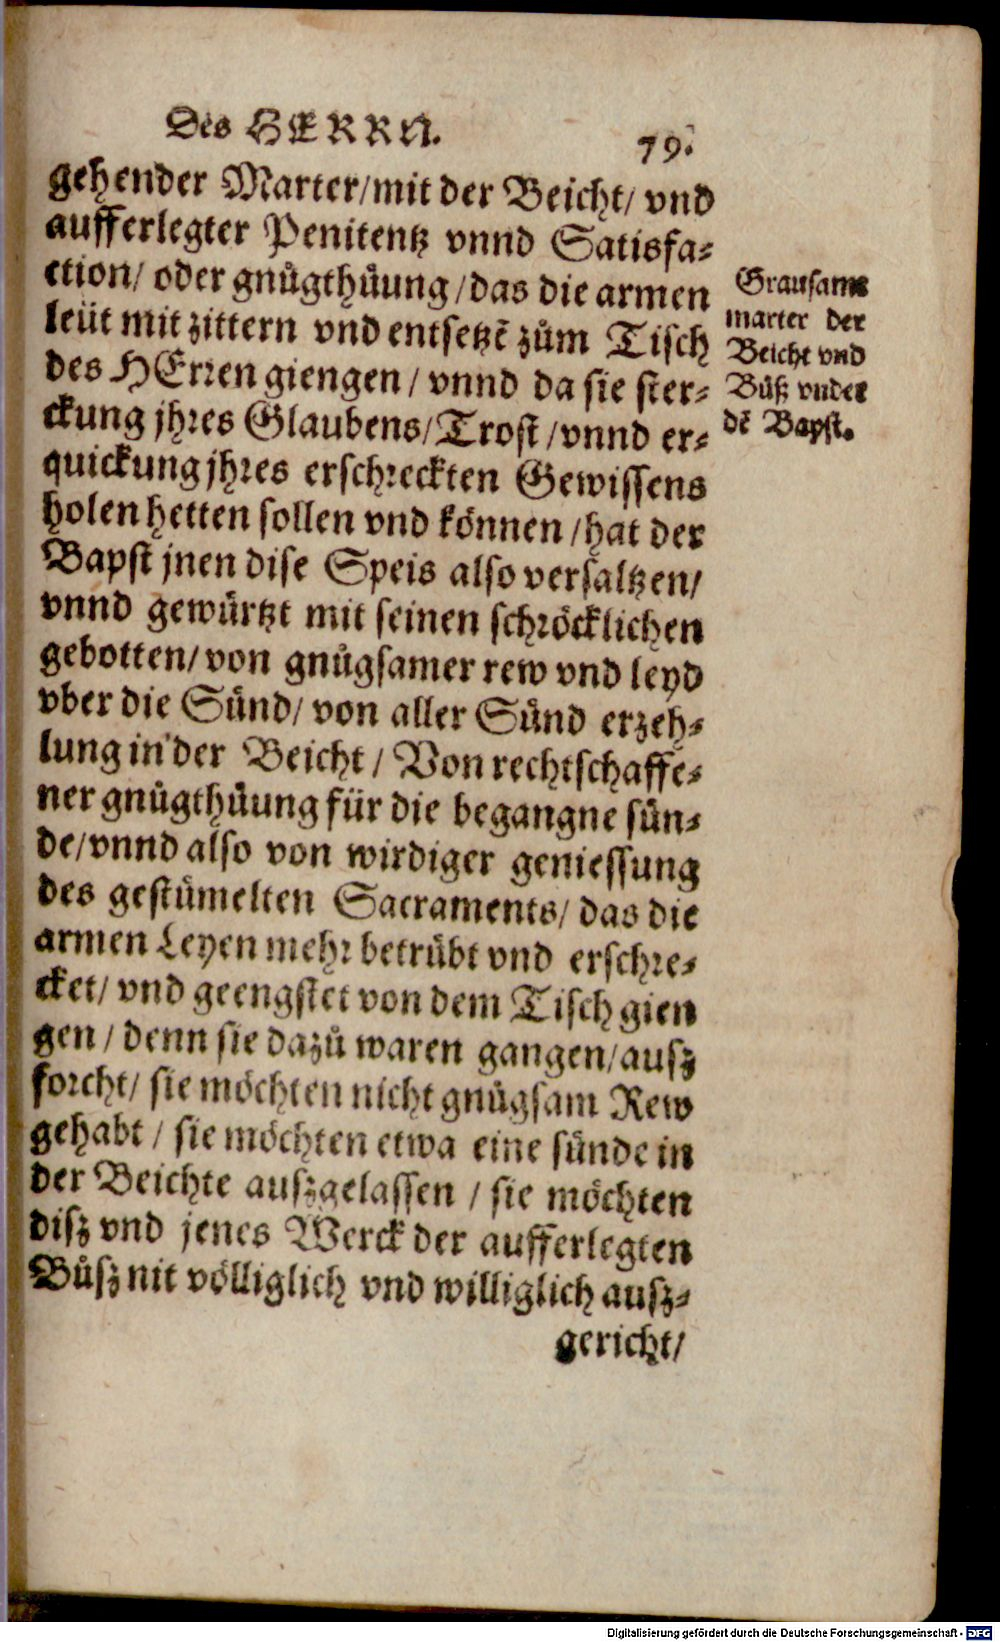 Des HERRN.
79.
gehender Marter/mit der Beicht/ vnd
aufferlegter Penitentz vnnd Satisfa⸗
ction/ oder gnůgthůung/das die armen
leüt mit zittern vnd entsetzē zům Tisch
des HErren giengen/ vnnd da sie ster⸗
ckung jhres Glaubens/Trost/vnnd er⸗
quickung jhres erschreckten Gewissens
holen hetten sollen vnd können/hat der
Bapst jnen dise Speis also versaltzen/
vnnd gewürtzt mit seinen schröcklichen
gebotten/von gnůgsamer rew vnd leyd
vber die Sünd/ von aller Sünd erzeh⸗
lung in der Beicht/ Von rechtschaffe⸗
ner gnůgthůung für die begangne sün⸗
de/vnnd also von wirdiger geniessung
des gestümelten Sacraments/ das die
armen Leyen mehr betrübt vnd erschre⸗
cket/ vnd geengstet von dem Tisch gien
gen/ denn sie dazů waren gangen/ausz
forcht/ sie möchten nicht gnůgsam Rew
gehabt/ sie möchten etwa eine sünde in
der Beichte auszgelassen/ sie möchten
disz vnd jenes Werck der aufferlegten
Bůsz nit völliglich vnd williglich ausz⸗
gericht/
Grausame
marter der
Beicht vnd
Bůß vnder
dē Bapst.
Digitalisierung gefördert durch die Deutsche Forschungsgemeinschaft - DFG